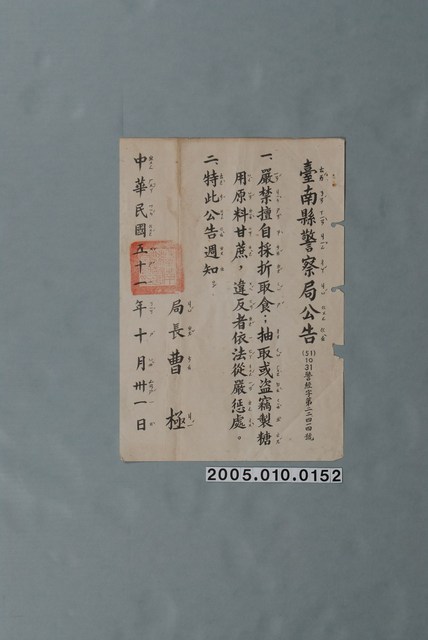 臺南縣警察局公告
(51)10 31警經字第二二四四號
一、嚴禁擅自採折取食；抽取或盜竊製糖
用原料甘蔗，違反者依法從嚴懲處。
二、特此公告週知。
局長曹極
中華民國五十一年十月卅一日
2005.010.0152